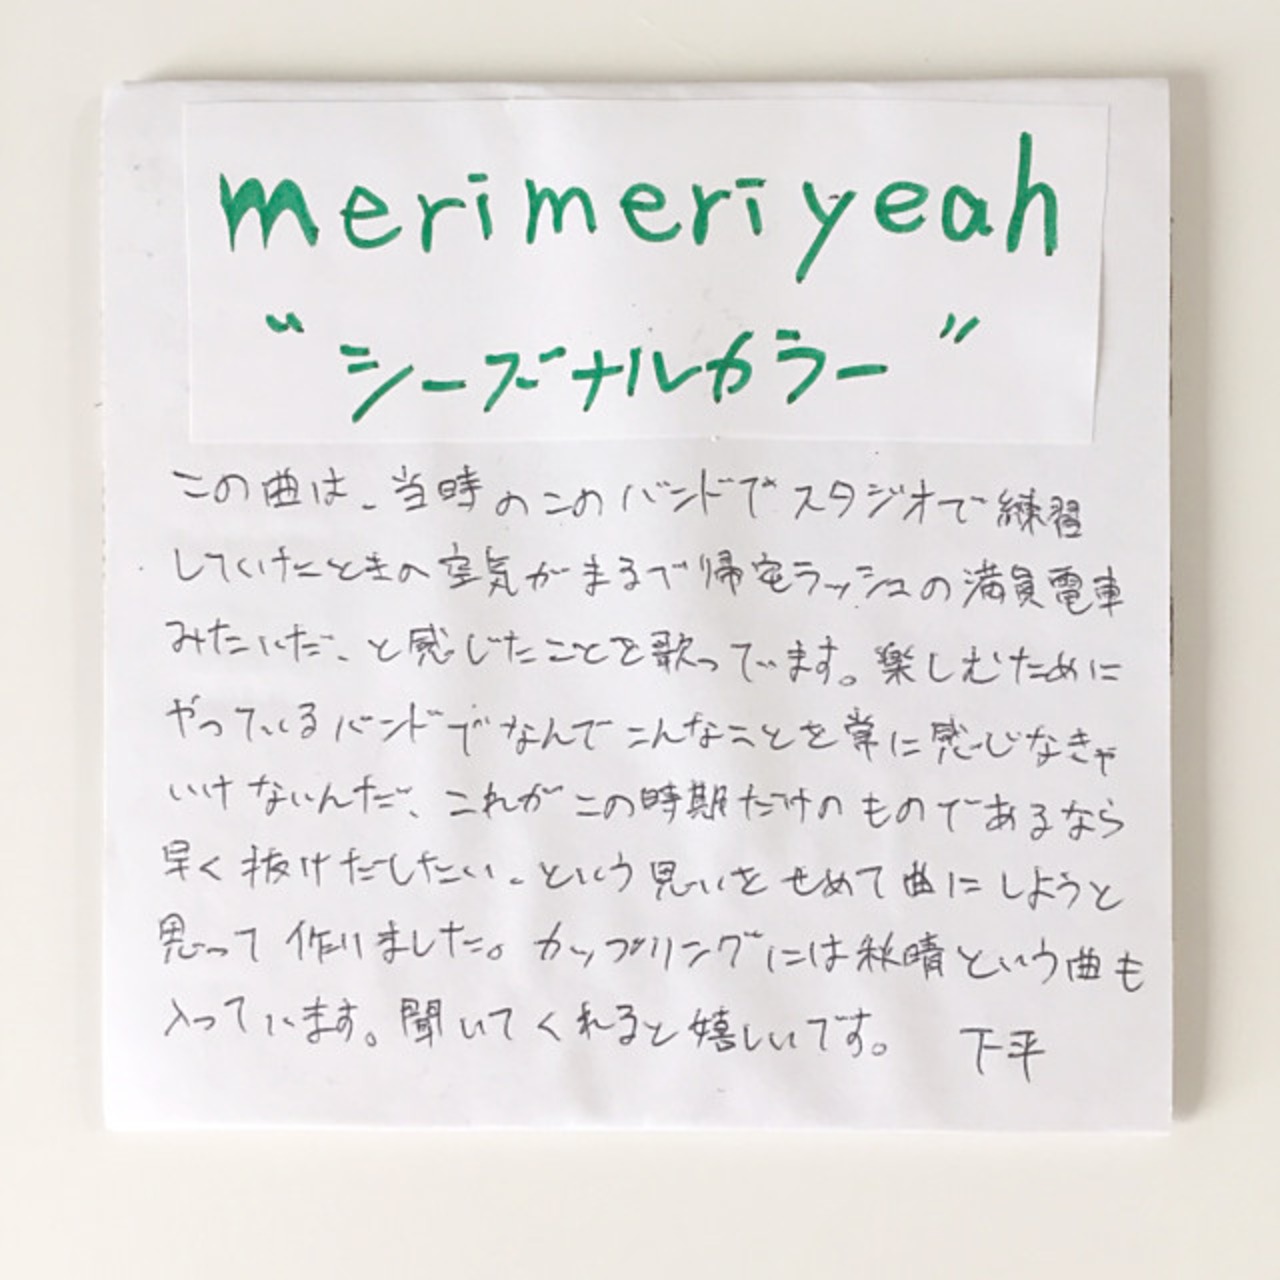 merimeriyeah
“シーズナルカラー”
この曲は、当時のこのバンドでスタジオで練習
していたときの空気がまるで帰宅ラッシュの満員電車
みたいだ、と感じたことを歌っています。楽しむために
やっているバンドでなんでこんなことを常に感じなきゃ
いけないんだ、これがこの時期だけのものであるなら
早く抜けだしたい、という思いをせめて曲にしようと
思って作りました。カップリングには秋晴という曲も
入っています。聞いてくれると嬉しいです。 下平